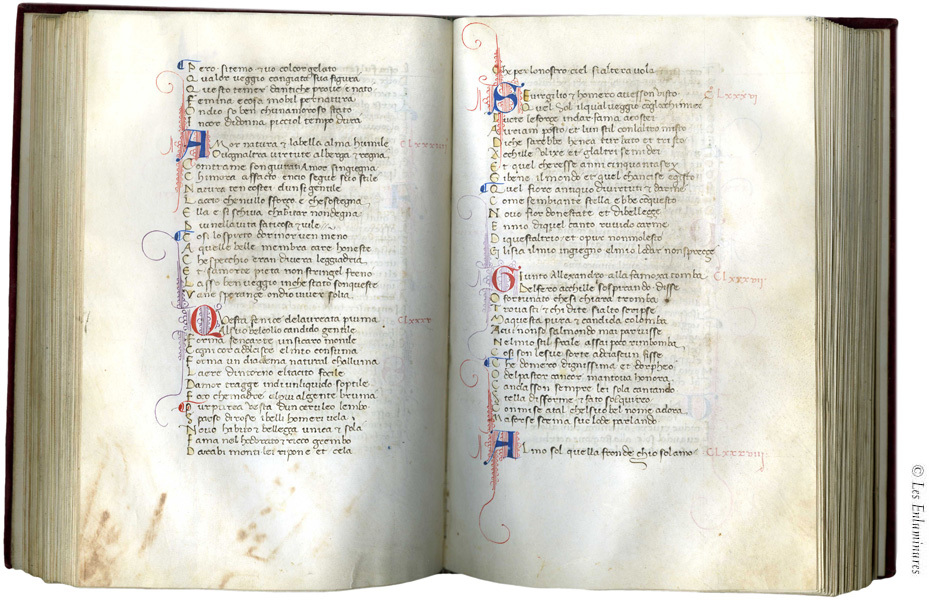 Pero sitremo & vo colcorgelato
Qualor veggio cangiata sua figura
Questo temer dantiche proue e nato
Femina e cosa mobil pernatura
Ondio so ben chunamoroso stato
Incor didonna picciol tempo dura
AMor natura & labella alma humile
Ouognaltra virtute alberga & regna
Contrame son giurati Amor singegna
Chimora affacto encio segue suo stile
Natura ten costei dunsi gentile
Laccio chenullo sforzo e chesostegna
Ella e si schiua chabitar nondegna
Piu nella vita faticosa & vile
Cosi lospirto dor inor ven meno
A quelle belle membra care honeste
Che specchio eran diuera leggiadria
Et samorte pieta nonstringel freno
Lasso ben veggio inche stato son queste
Vane speranze ondio viuer solia
QUesta fenice delaurata piuma CLxxxv
Alsuo bel collo candido gentile
Forma sencarte un sicaro monile
Cogni cor adolcisce el mio consuma
Forma un diadema natural challuma
Laere dintorno el tacito focile
Damor tragge indi un liquido soptile
Foco che marde elapiu algente bruma
Purpurea vesta dun ceruleo lembo
Sparso dirose ibelli homeri vela
Nouo habito & bellezza unica & sola
Fama nel hodorato & ricco grembo
Darabi monti lei ripone et cela
Che perlonostro ciel sialtera vola
SEvirgilio & homero auesson visto CLxxxvi
Quel Sol ilqual veggio cogliochi miei
Tucte lesorze indar fama acostei
Aurian posto et lun stil conlaltro misto
Di che sarebbe henea turbato et tristo
Acchille vlixe et glialtri semidei
Et quel cheresse anni cinquantasey
Si bene il mondo et quel chancise egisto
Quel fiore antiquo di virtuti & darme
Come sembiante stella ebbe coquesto
Nouo fior donestate et dibellezze
Ennio diquel canto ruuido carme
Di questaltro io et opur nonmolesto
Gli sia ilmio ingiegno elmio lodar non sprezze
GIunto Allexandro alla famosa tomba CLxxxvii
Delfero acchille sospirando disse
O fortunato che si chiara tromba
Trouasti & chi dite sialto scripse
Ma questa pura & candida colomba
A cui non so salmondo mai par uisse
Nel mio stil frale assai poco rimbomba
Cosi son lesue sorte aciascun fisse
Che domero dignissima et dorpheo
O del pastor cancor mantoua honora
Candasson sempre lei sola cantando
Stella difforme & fato sol quireo
Conmise atal chel suo bel nome adora
Ma forse scema sue lode parlando
ALmo sol quella fronde chio sol amo CLxxxviii
© Les Enluminures